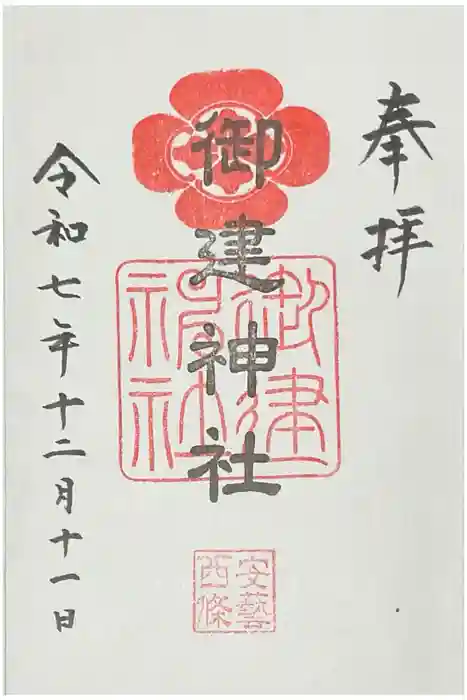 奉拝
御建神社
御建
神社
安藝
西條
令和七年十二月十一日